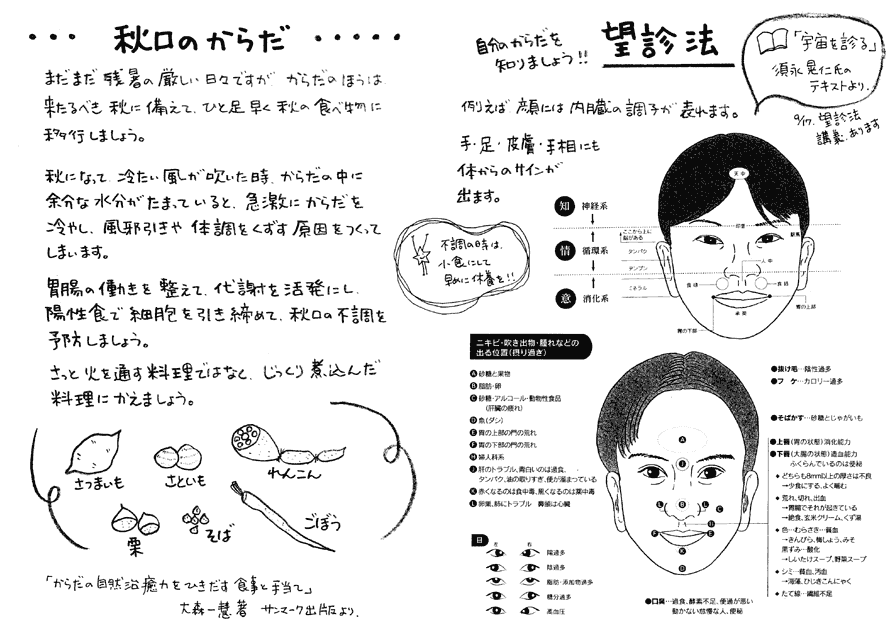 ・・・ 秋口のからだ ・・・・・
まだまだ残暑の厳しい日々ですが、からだのほうは
来たるべき秋に備えて、ひと足早く秋の食べ物に
移行しましょう。
秋になって、冷たい風が吹いた時、からだの中に
余分な水分がたまっていると、急激にからだを
冷やし、風邪引きや体調をくずす原因をつくって
しまいます。
胃腸の働きを整えて、代謝を活発にし、
陽性食で細胞を引き締めて、秋口の不調を
予防しましょう。
さっと火を通す料理ではなく、じっくり煮込んだ
料理にかえましょう。
さつまいも
さといも
れんこん
栗
そば
ごぼう
「からだの自然治癒力をひきだす食事と手当て」
大森一慧著 サンマーク出版より。
自分のからだを
知りましょう!!
望診法
「宇宙を診る」
須永晃仁氏の
テキストより。
9/17. 望診法
講義、あります
例えば 顔には 内臓の調子が 表れます。
手・足・皮膚・手相にも
体からのサインが
出ます。
不調の時は、
小食にして
早めに休養を!!
知 神経系
情 循環系
意 消化系
ここから上に
脳がある
タンパク
デンプン
ミネラル
天中
印堂
駅馬
人中
食緑
食緑
承漿
胃の上部
胃の下部
ニキビ・吹き出物・腫れなどの
出る位置(摂り過ぎ)
A 砂糖と果物
B 脂肪・卵
C 砂糖・アルコール・動物性食品
(肝臓の疲れ)
D 魚(ダシ)
E 胃の上部の門の荒れ
F 胃の下部の門の荒れ
H 婦人科系
J 肝のトラブル、青白いのは過食、
タンパク、油の取りすぎ、便が溜まっている
K 赤くなるのは食中毒、黒くなるのは薬中毒
L 卵巣、肺にトラブル 鼻頭は心臓
目
左 右
陽過多
陰過多
脂肪・添加物過多
糖分過多
高血圧
A
J
L B L C
H
F E
K
D
●抜け毛…陰性過多
●フケ…カロリー過多
●そばかす…砂糖とじゃがいも
●上唇(胃の状態)消化能力
●下唇(大腸の状態)造血能力
ふくらんでいるのは便秘
◆どちらも8mm以上の厚さは不良
→少食にする、よく噛む
◆荒れ、切れ、出血
→胃腸でそれが起きている
→絶食、玄米クリーム、くず湯
◆色…むらさき…貧血
→きんぴら、梅しょう、みそ
黒ずみ…酸化
→しいたけスープ、野菜スープ
◆シミ…貧血、汚血
→海藻、ひじきこんにゃく
◆たて線…繊維不足
●口臭…過食、酵素不足、便通が悪い
動かない怠慢な人、便秘